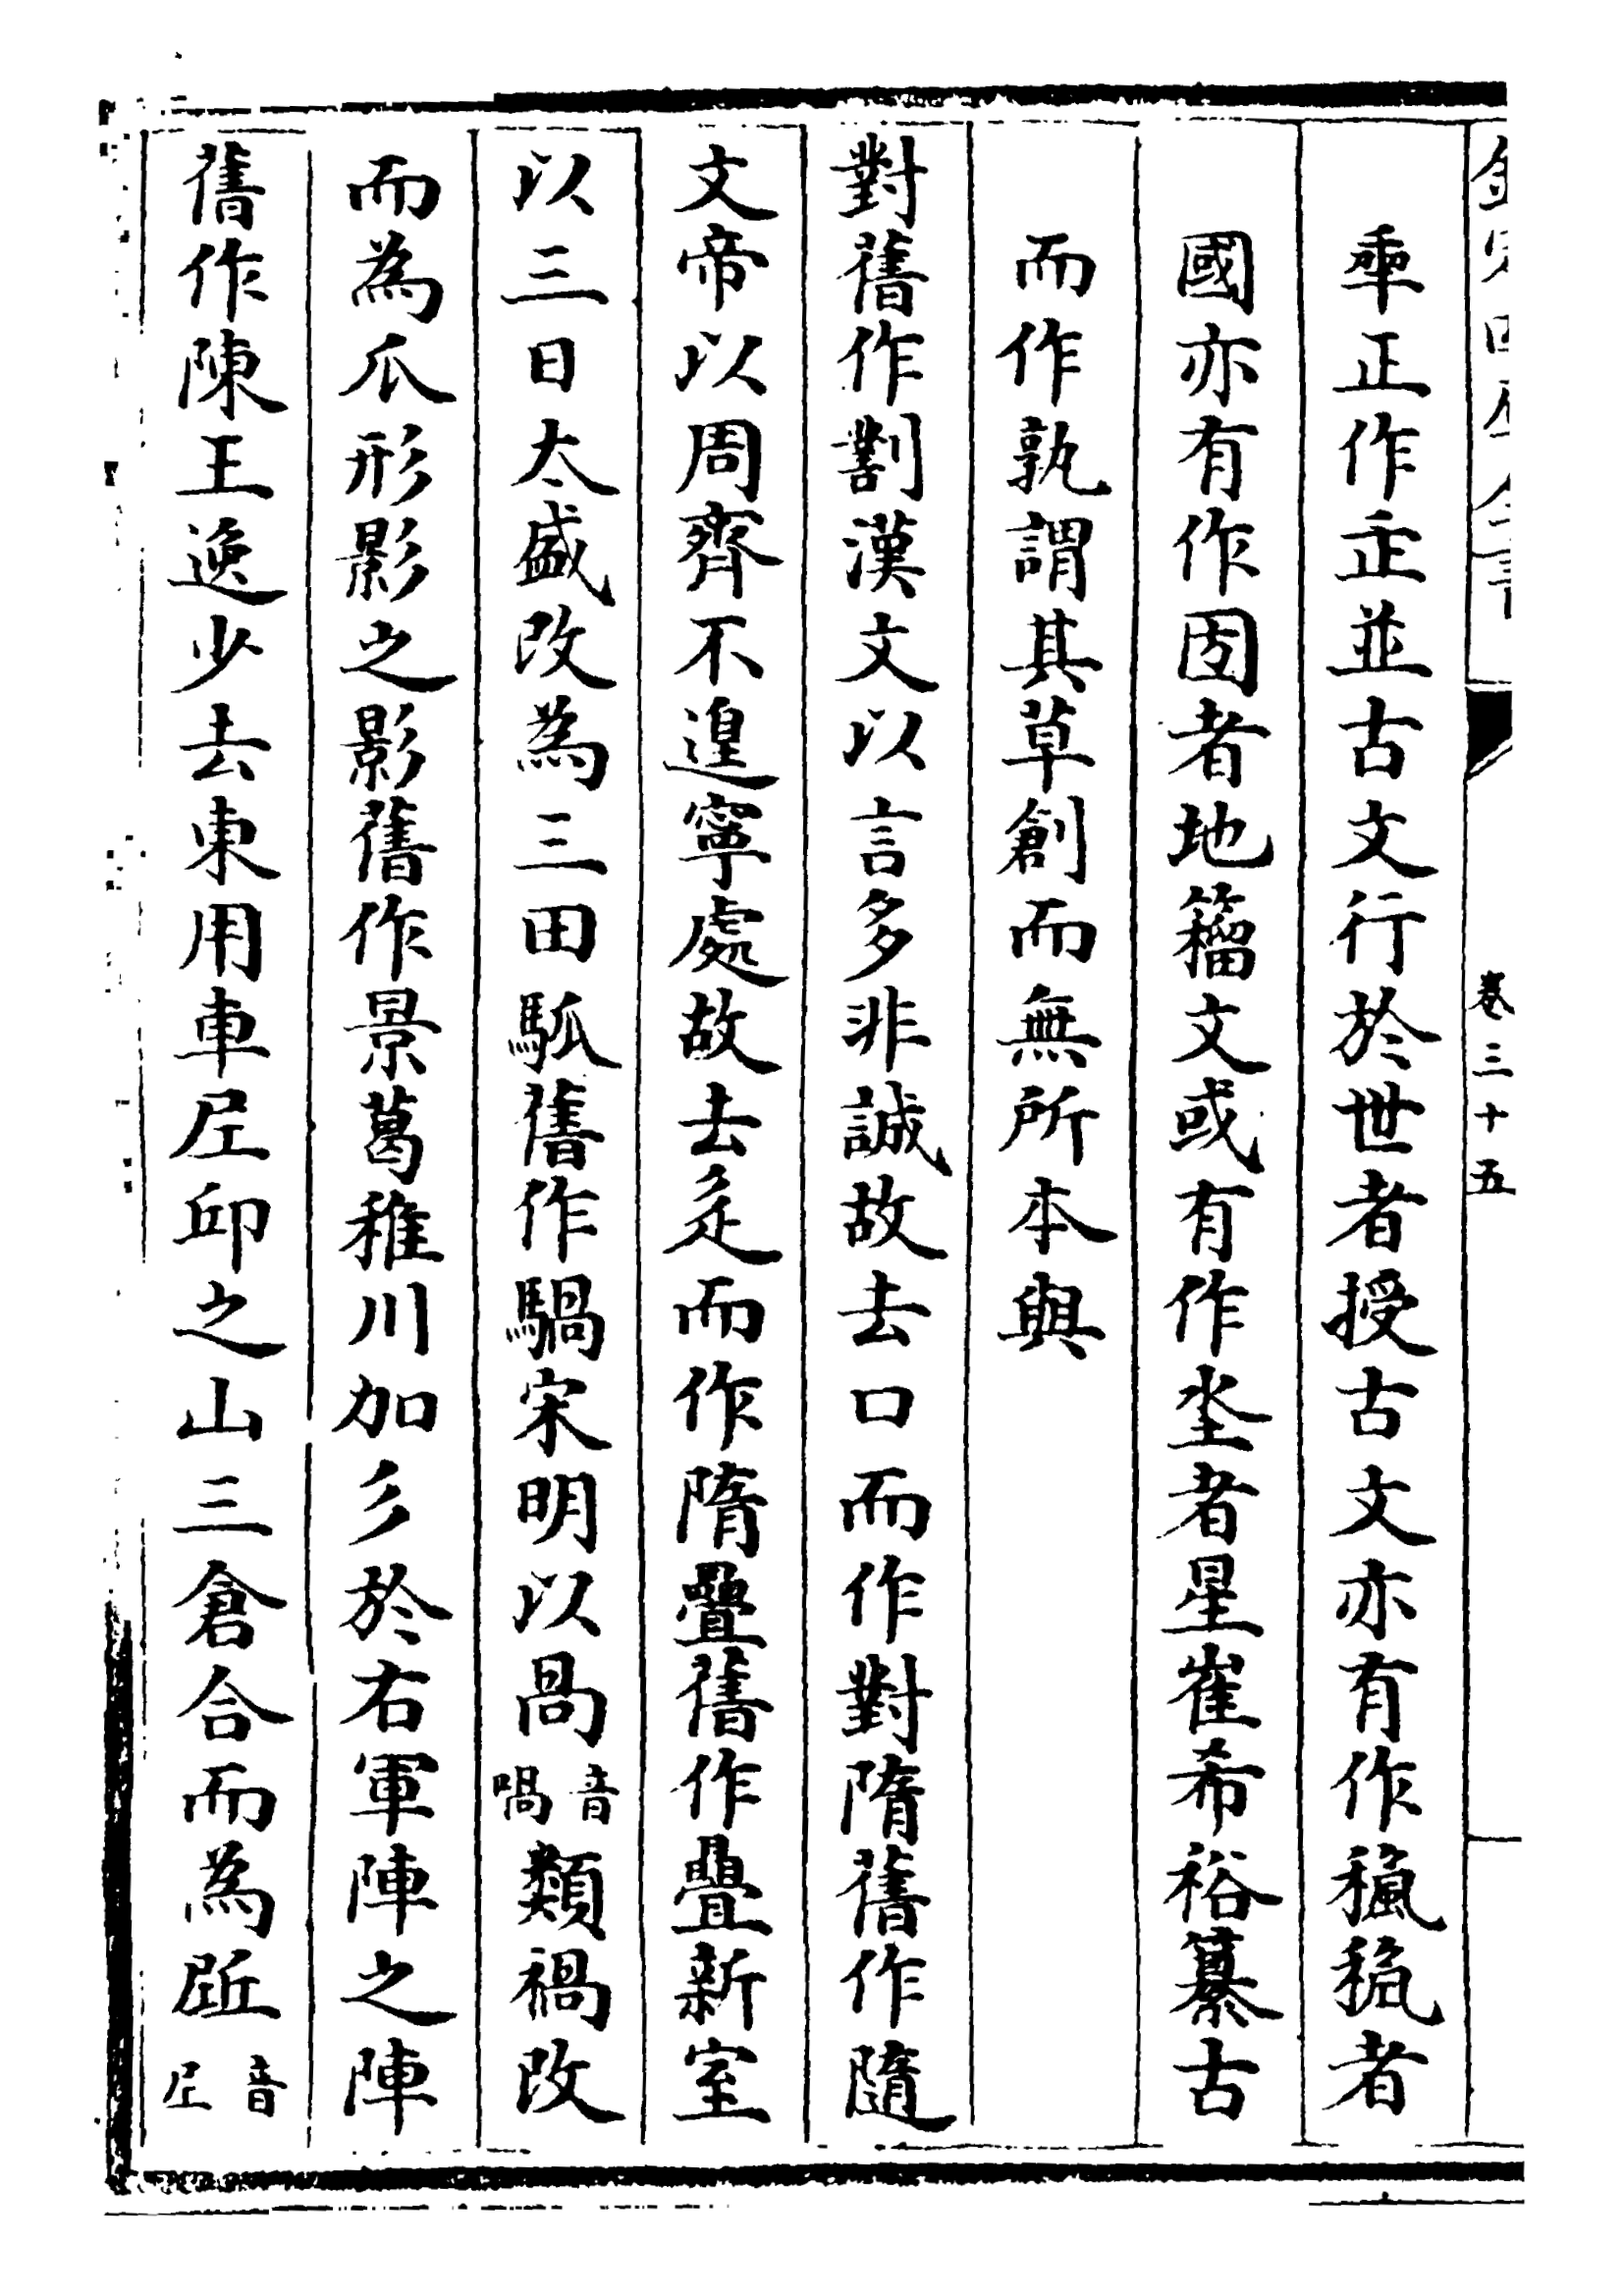 欽定四庫全書 卷三十五
正作並古文行於世者授古文亦有作者
國亦有作者地籀文或有作埊者星崔希裕纂古
而作孰謂其草創而無所本與
對舊作漢文以言多非誠故去口而作對隋舊作隨
文帝以周齊不遑寧處故去辵而作隋疊舊作曡新室
以三日太盛改為三田𩢍舊作騧宋明以咼音喎類禍改
而為瓜形影之影舊作景葛稚川加彡於右軍陣之陣
舊作陳王逸少去東用車邱之山三倉合而為音